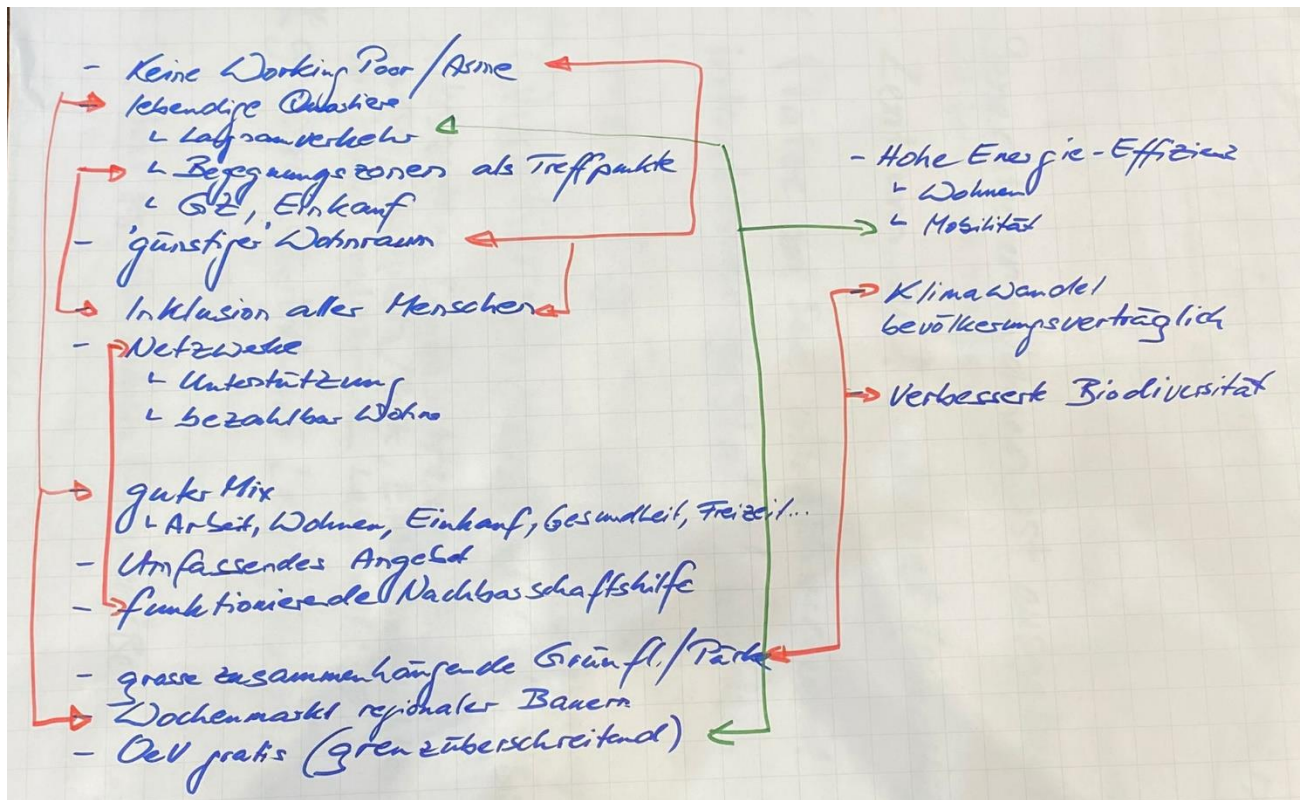 - Keine Working Poor / Arme
- lebendige Quartiere
└ Langsamverkehr
└ Begegnungszonen als Treffpunkte
└ GZ, Einkauf
- 'günstiger' Wohnraum
- Inklusion aller Menschen
- Netzwerke
└ Unterstützung
└ bezahlbar Wohne
- guter Mix
└ Arbeit, Wohnen, Einkauf, Gesundheit, Freizeit...
- Umfassendes Angebot
- funktionierende Nachbarschaftshilfe
- grosse zusammenhängende Grünfl./Pärke
- Wochenmarkt regionaler Bauern
- OeV gratis (grenzüberschreitend)
- Hohe Energie-Effizienz
└ Wohnen
└ Mobilität
- Klimawandel
bevölkerungsverträglich
- Verbesserte Biodiversität